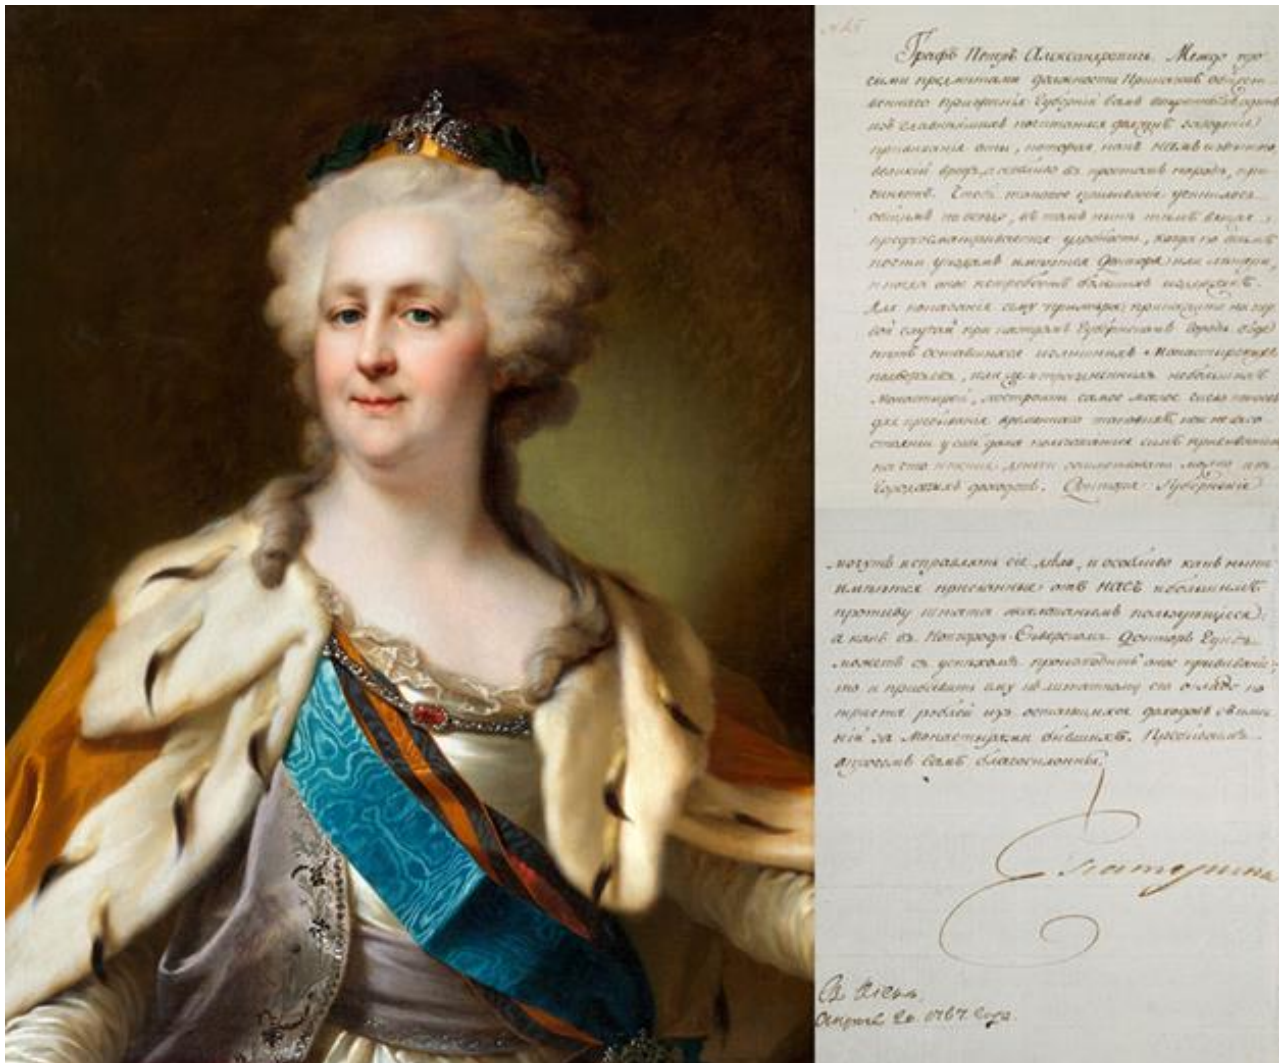 Графъ Петръ Александровичь. Между про
чими предметами должности Приказовъ общест
веннаго призрѣнія Губерній вамъ ввѣренныхъ одинъ
изъ главнѣйшихъ почитаемъ долженъ заведеніе
прививанія оспы, которая какъ намъ извѣстно
великій вредъ, особливо въ простомъ народѣ, при
чиняетъ. Чтобъ таковое прививаніе
вездѣ, въ томъ нынѣ тѣмъ вящая
предусматривается удобность, когда по
уѣздамъ имѣются Доктора или лекари,
и
Для показанія сему примѣра прикажите на пер
вой случай при каждомъ Губернскомъ городѣ
изъ оставшихся излишнихъ Монастырскихъ
или изъ упраздненныхъ небольшихъ
Монастырей, построить самое малое число покоевъ
для пребыванія временнаго таковыхъ кои не въ со
стояніи у себя дома пользоваться симъ прививаніемъ
на что нужныя деньги можно изъ
Городскихъ доходовъ. Доктора Губернскіе
могутъ исправлять сіе дѣло, и особливо какъ нынѣ
имѣются присланные отъ НАСЪ и большимъ
противу штата жалованьемъ пользующіеся:
а какъ въ Новгородѣ-Сѣверскомъ Докторъ Гунъ
можетъ съ успѣхомъ производить оное прививаніе,
то и прибавить ему къ штатному его окладу по
триста рублей изъ оставшихся доходовъ съ имѣ
ній за Монастырями бывшихъ. Пребываемъ
впрочемъ вамъ благосклонны.
Екатерина
Въ Кіевѣ
Апрѣля 20. 1787 года.